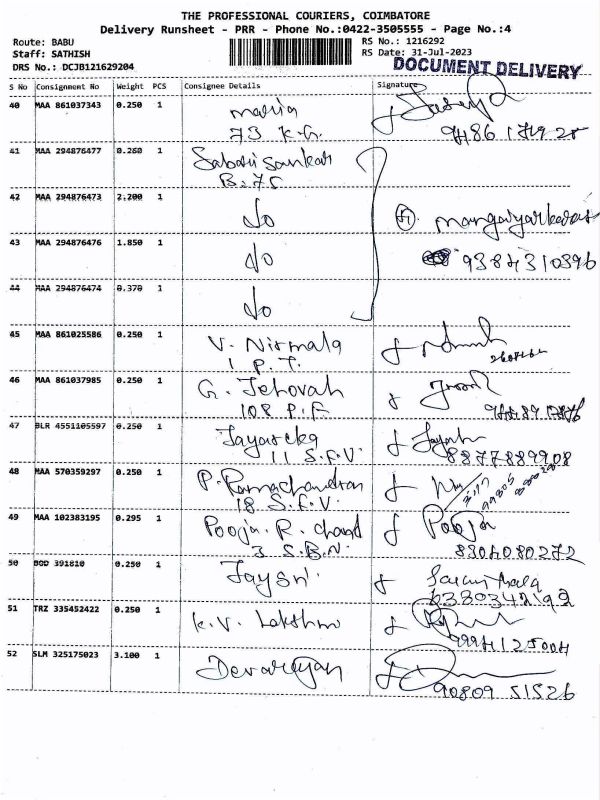 THE PROFESSIONAL COURIERS, COIMBATORE
Delivery Runsheet - PRR - Phone No.:0422-3505555 - Page No.:4
Route: BABU RS No.: 1216292
Staff: SATHISH RS Date: 31-Jul-2023
DRS No.: DCJB121629204 DOCUMENT DELIVERY
S No Consignment No Weight PCS Consignee Details Signature
40 MAA 861037343 0.250 1 maria
73 K.G.
41 MAA 294876477 0.260 1 Sabari Sankar
B.75
42 MAA 294876473 2.200 1 do mangaiyarkarasi
43 MAA 294876476 1.850 1 do 9384310396
44 MAA 294876474 0.370 1 do
45 MAA 861025586 0.250 1 V. Nirmala
1 P.T.
46 MAA 861037985 0.250 1 G. Jehovah
108 P.F
47 BLR 4551105597 0.250 1
11 S.F.V. 8877889908
48 MAA 570359297 0.250 1 P. Ramachandran
18 S.F.V.
49 MAA 102383195 0.295 1 Pooja. R. chand Pooja
3 S.B.N. 8304080272
50 DOD 391810 0.250 1 Jaysri
6380342192
51 TRZ 335452422 0.250 1 K.V. Lakshmo
52 SLM 325175023 3.100 1 Devarayan
90809 51526